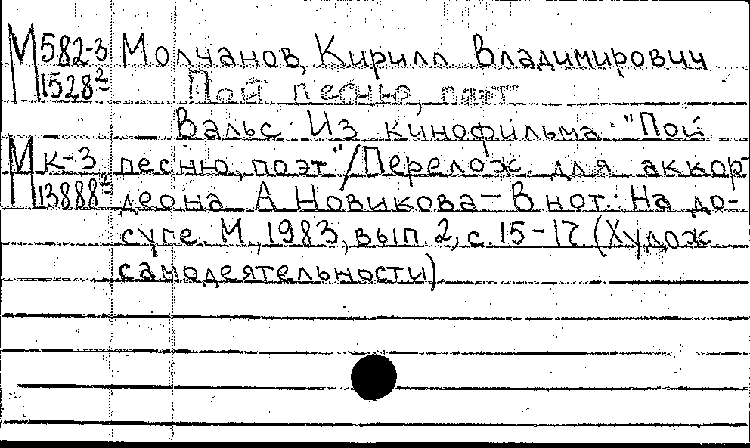 М 582-3 Молчанов, Кирилл Владимирович
1528² Пой песню, поэт
Вальс. Из кинофильма: "Пой
М к-3 песню, поэт"/Перелож. для аккор
13888 деона А. Новикова – В нот.: На до-
суге. М., 1983, вып. 2, с. 15-17 (Худож
самодеятельности)